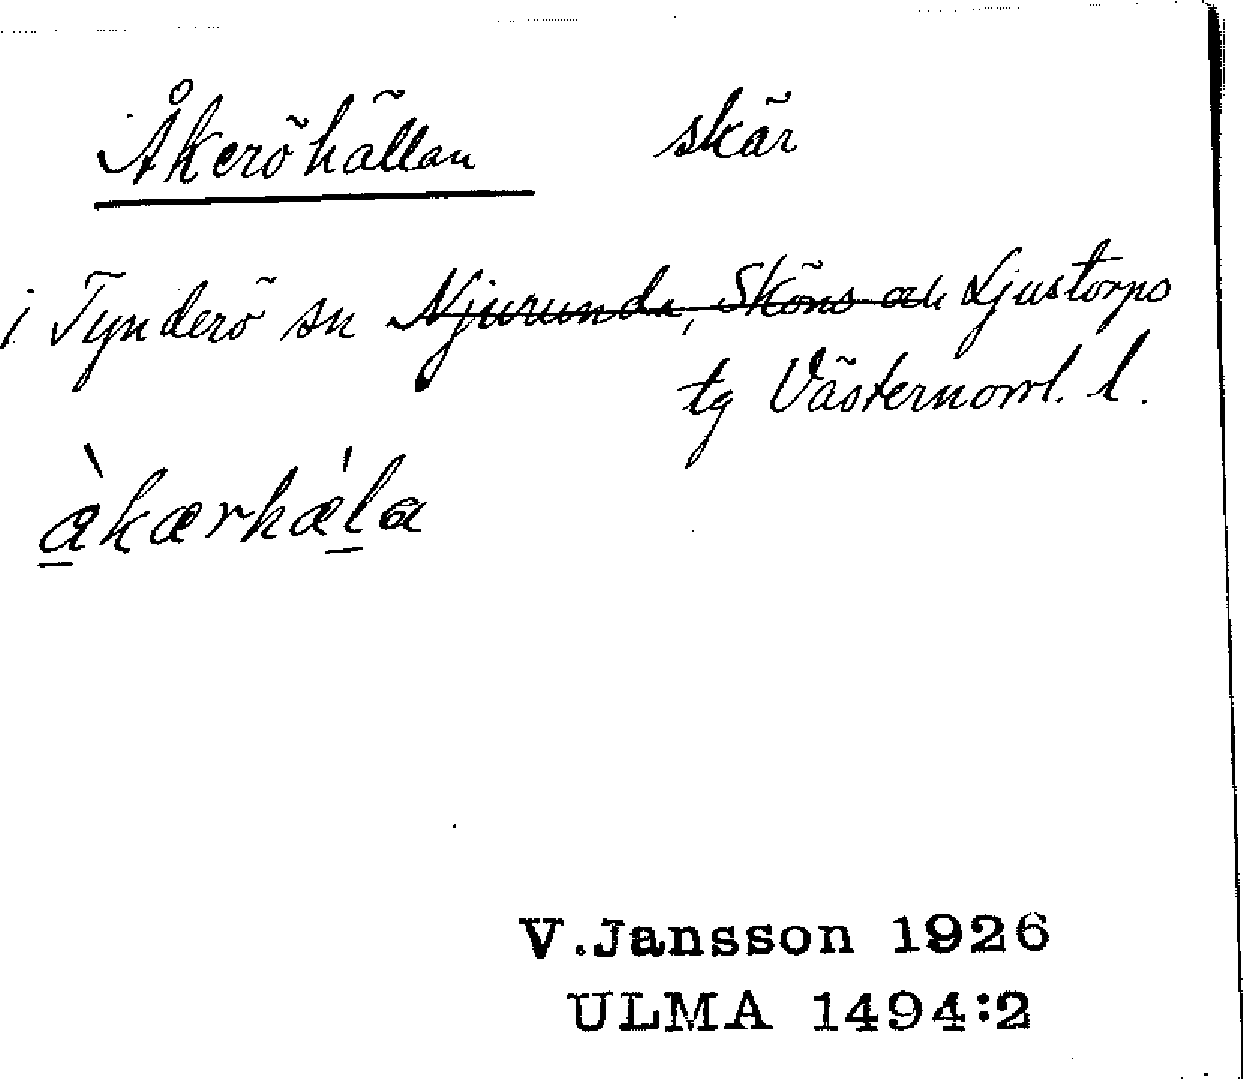 Åkeröhällan skär
i Tynderö sn Njurunda, Sköns och Ljustorps
tg Västernorrl. l.
àkærhæ̀la
V.Jansson 1926
ULMA 1494:2